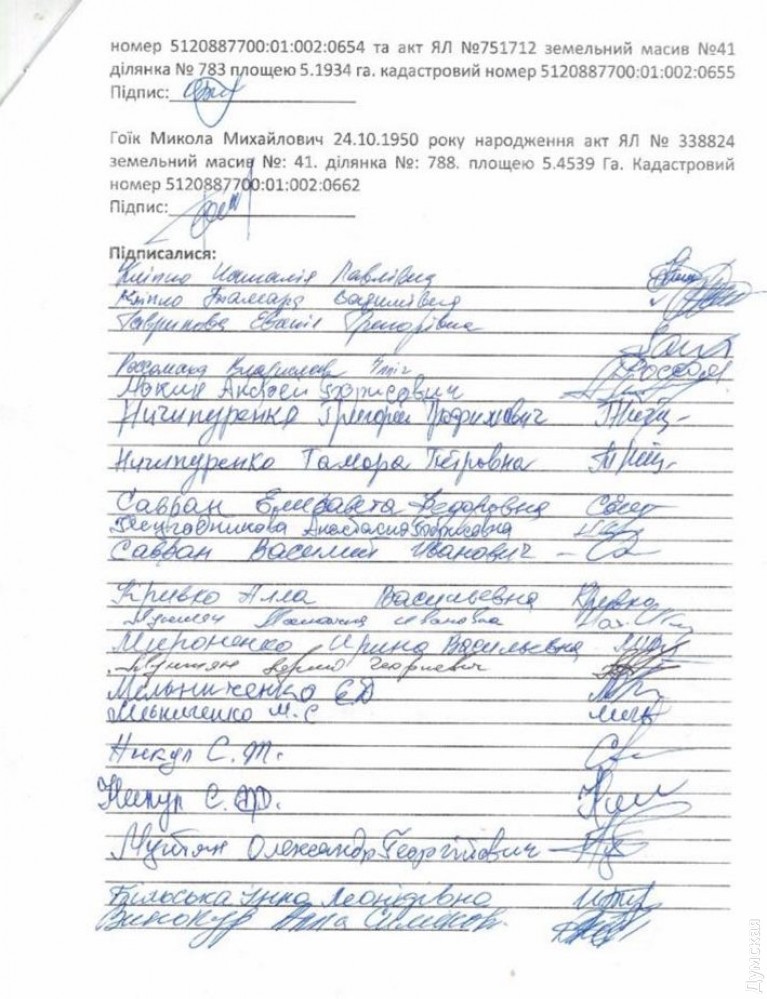 номер 5120887700:01:002:0654 та акт ЯЛ №751712 земельний масив №41
ділянка № 783 площею 5.1934 га. кадастровий номер 5120887700:01:002:0655
Підпис:
Гоїк Микола Михайлович 24.10.1950 року народження акт ЯЛ № 338824
земельний масив №: 41. ділянка №: 788. площею 5.4539 Га. Кадастровий
номер 5120887700:01:002:0662
Підпис:
Підписалися:
Кліпко Наталія Павлівна
Кліпко Тамара Вадимівна
Гаврилова Євгенія Григорівна
Владислав
Алексей Борисович
Ничипуренко Григорий Трофимович
Ничипуренко Тамара Петровна
Савран Елизавета Федоровна
Анастасия Борисовна
Савран Василий Иванович
Кривко Алла Васильевна
Ивановна
Мироненко Ирина Васильевна
Георгиевич
Мельниченко
Мельниченко М.С
Никул С. Т.
Никул С. Ф.
Мунтян Олександр Георгійович
Більська Інна Леонідівна
Винокур Алла
Думская